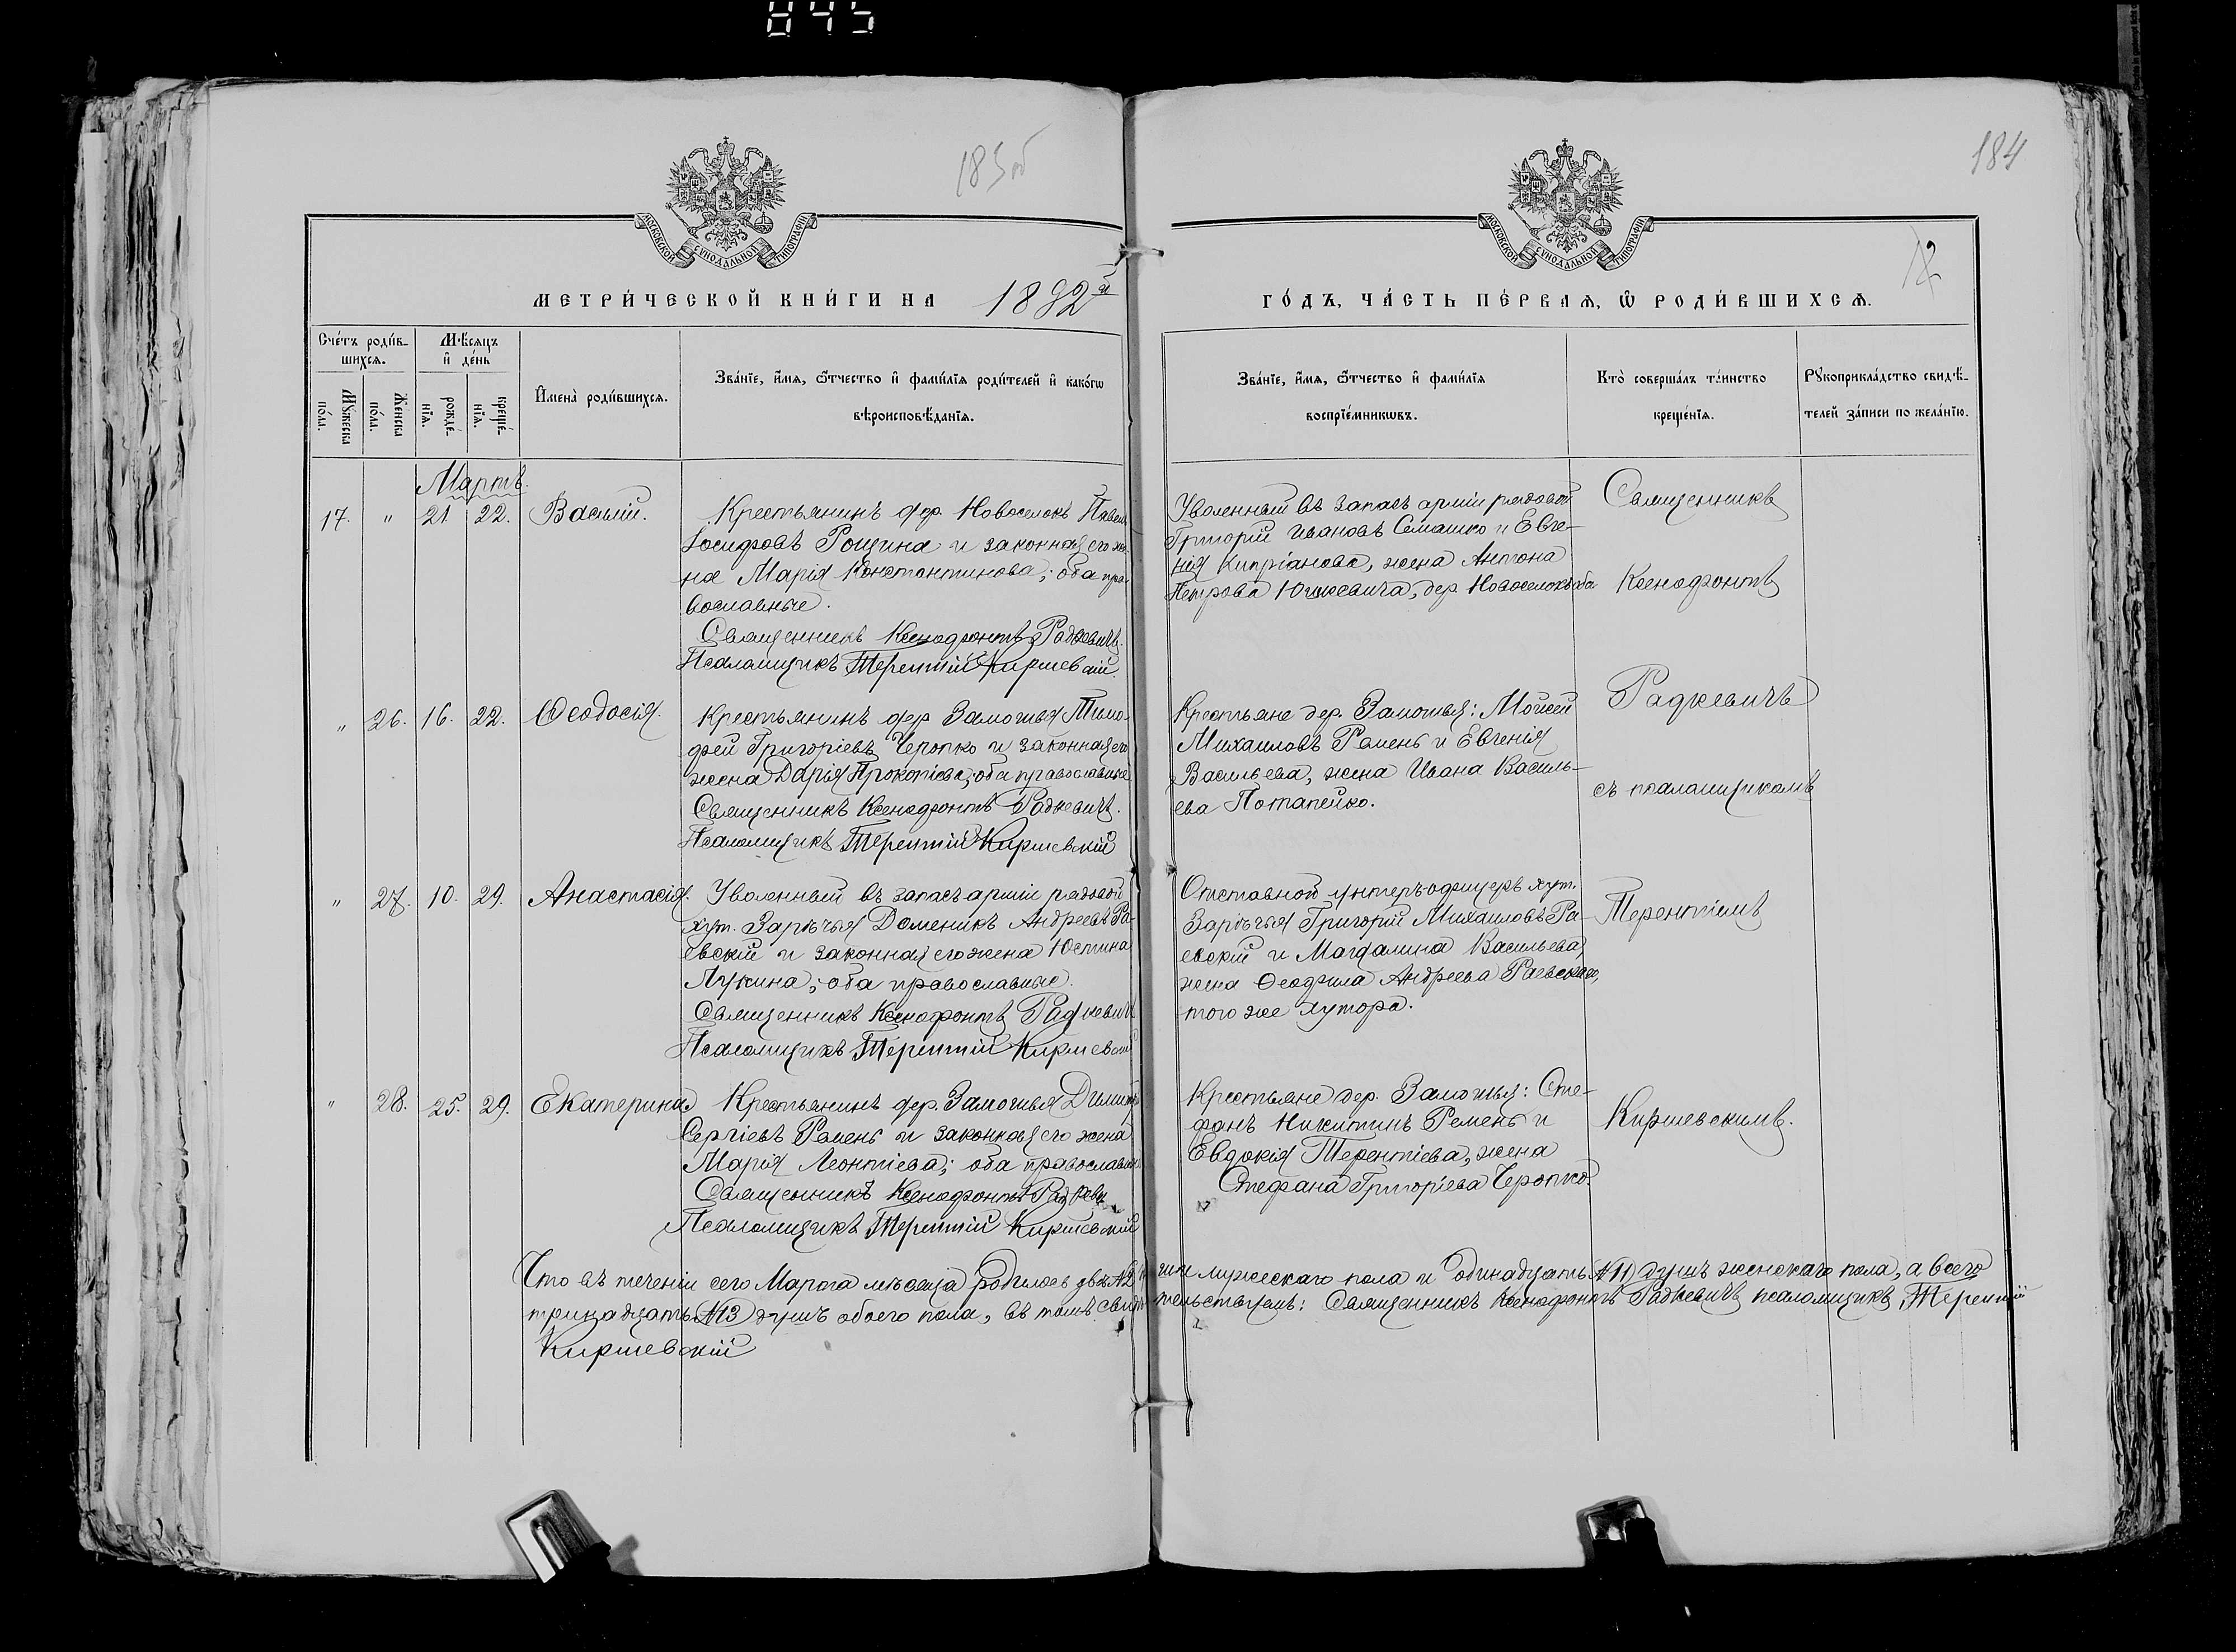 845
183об
184
12
МОСКОВСКОЙ СѴНОДАЛЬНОЙ ТИПОГРАФІИ
МОСКОВСКОЙ СѴНОДАЛЬНОЙ ТИПОГРАФІИ
МЕТРИ́ЧЕСКОЙ КНИ́ГИ НА 1892й
ГО́ДЪ, ЧА́СТЬ ПЕ́РВАѦ, Ѿ РОДИ́ВШИХСѦ.
Сче́тъ роди́в-
шихсѧ.
Мꙋ́жеска
по́ла.
Же́нска
по́ла.
Мѣ́сѧцъ
и҆ де́нь
рожде́-
нїѧ.
креще́-
нїѧ.
И҆мена̀ роди́вшихсѧ.
Зва́нїе, и҆́мѧ, ѻ҆́тчество и҆ фами́лїѧ роди́телей и҆ како́гѡ
вѣроисповѣ́данїѧ.
Зва́нїе, и҆́мѧ, ѻ҆́тчество и҆ фами́лїѧ
воспрїе́мникѡвъ.
Кто̀ соверша́лъ та́инство
креще́нїѧ.
Рꙋкоприкла́дство свидѣ́-
телей за́писи по жела́нїю.
Мартъ.
17. " 21 22. Василій.
Крестьянинъ дер. Новоселокъ Павелъ
Іосифовъ Рощина и законная его же-
на Марія Константинова; оба пра-
вославные.
Священникъ Ксенофонтъ Радкевичъ.
Псаломщикъ Терентій Киршевскій.
Уволенный въ запасъ арміи рядовой
Григорій Ивановъ Семашко и Евге-
нія Кипріанова, жена Антона
Петрова Юшкевича, дер. Новоселокъ оба
" 26. 16. 22. Ѳеодосія.
Крестьянинъ дер. Замошья Тимо-
фей Григоріевъ Черопко и законная его
жена Дарія Прокопіева; оба православные
Священникъ Ксенофонтъ Радкевичъ.
Псаломщикъ Терентій Киршевскій
Крестьяне дер. Замошья: Мойсей
Михаиловъ Ремень и Евгенія
Васильева, жена Ивана Василь-
ева Потапейко.
" 27. 10. 29. Анастасія.
Уволенный въ запасъ арміи рядовой
хут. Зарѣчья Доменикъ Андреевъ Ра-
евскій и законная его жена Юстина
Лукина; оба православные.
Священникъ Ксенофонтъ Радкевичъ
Псаломщикъ Терентій Киршевскій
Отставной унтеръ-офицеръ хут.
Зарѣчья Григорій Михаиловъ Ра-
евскій и Магдалина Васильева,
жена Ѳеофила Андреева Раевскаго,
того же хутора.
" 28. 25. 29. Екатерина
Крестьянинъ дер. Замошья Димитрій
Сергіевъ Ремень и законная его жена
Марія Леонтіева; оба православные
Священникъ Ксенофонтъ Радкеви
Псаломщикъ Терентій Киршевскій
Крестьяне дер. Замошья: Сте-
фанъ Никитинъ Ремень и
Евдокія Терентіева, жена
Стефана Григорьева Черопко.
Священникъ
Ксенофонтъ
Радкевичъ
съ псаломщикомъ
Терентіемъ
Киршевскимъ.
Что въ теченіи сего Марта мѣсяца родилось двѣ №2 мужескаго пола и одинадцать №11) душъ женскаго пола, а всего
тринадцать №13) душъ обоего пола, въ томъ свидѣтельствуемъ: Священникъ Ксенофонтъ Радкевичъ псаломщикъ Терентій
Киршевскій